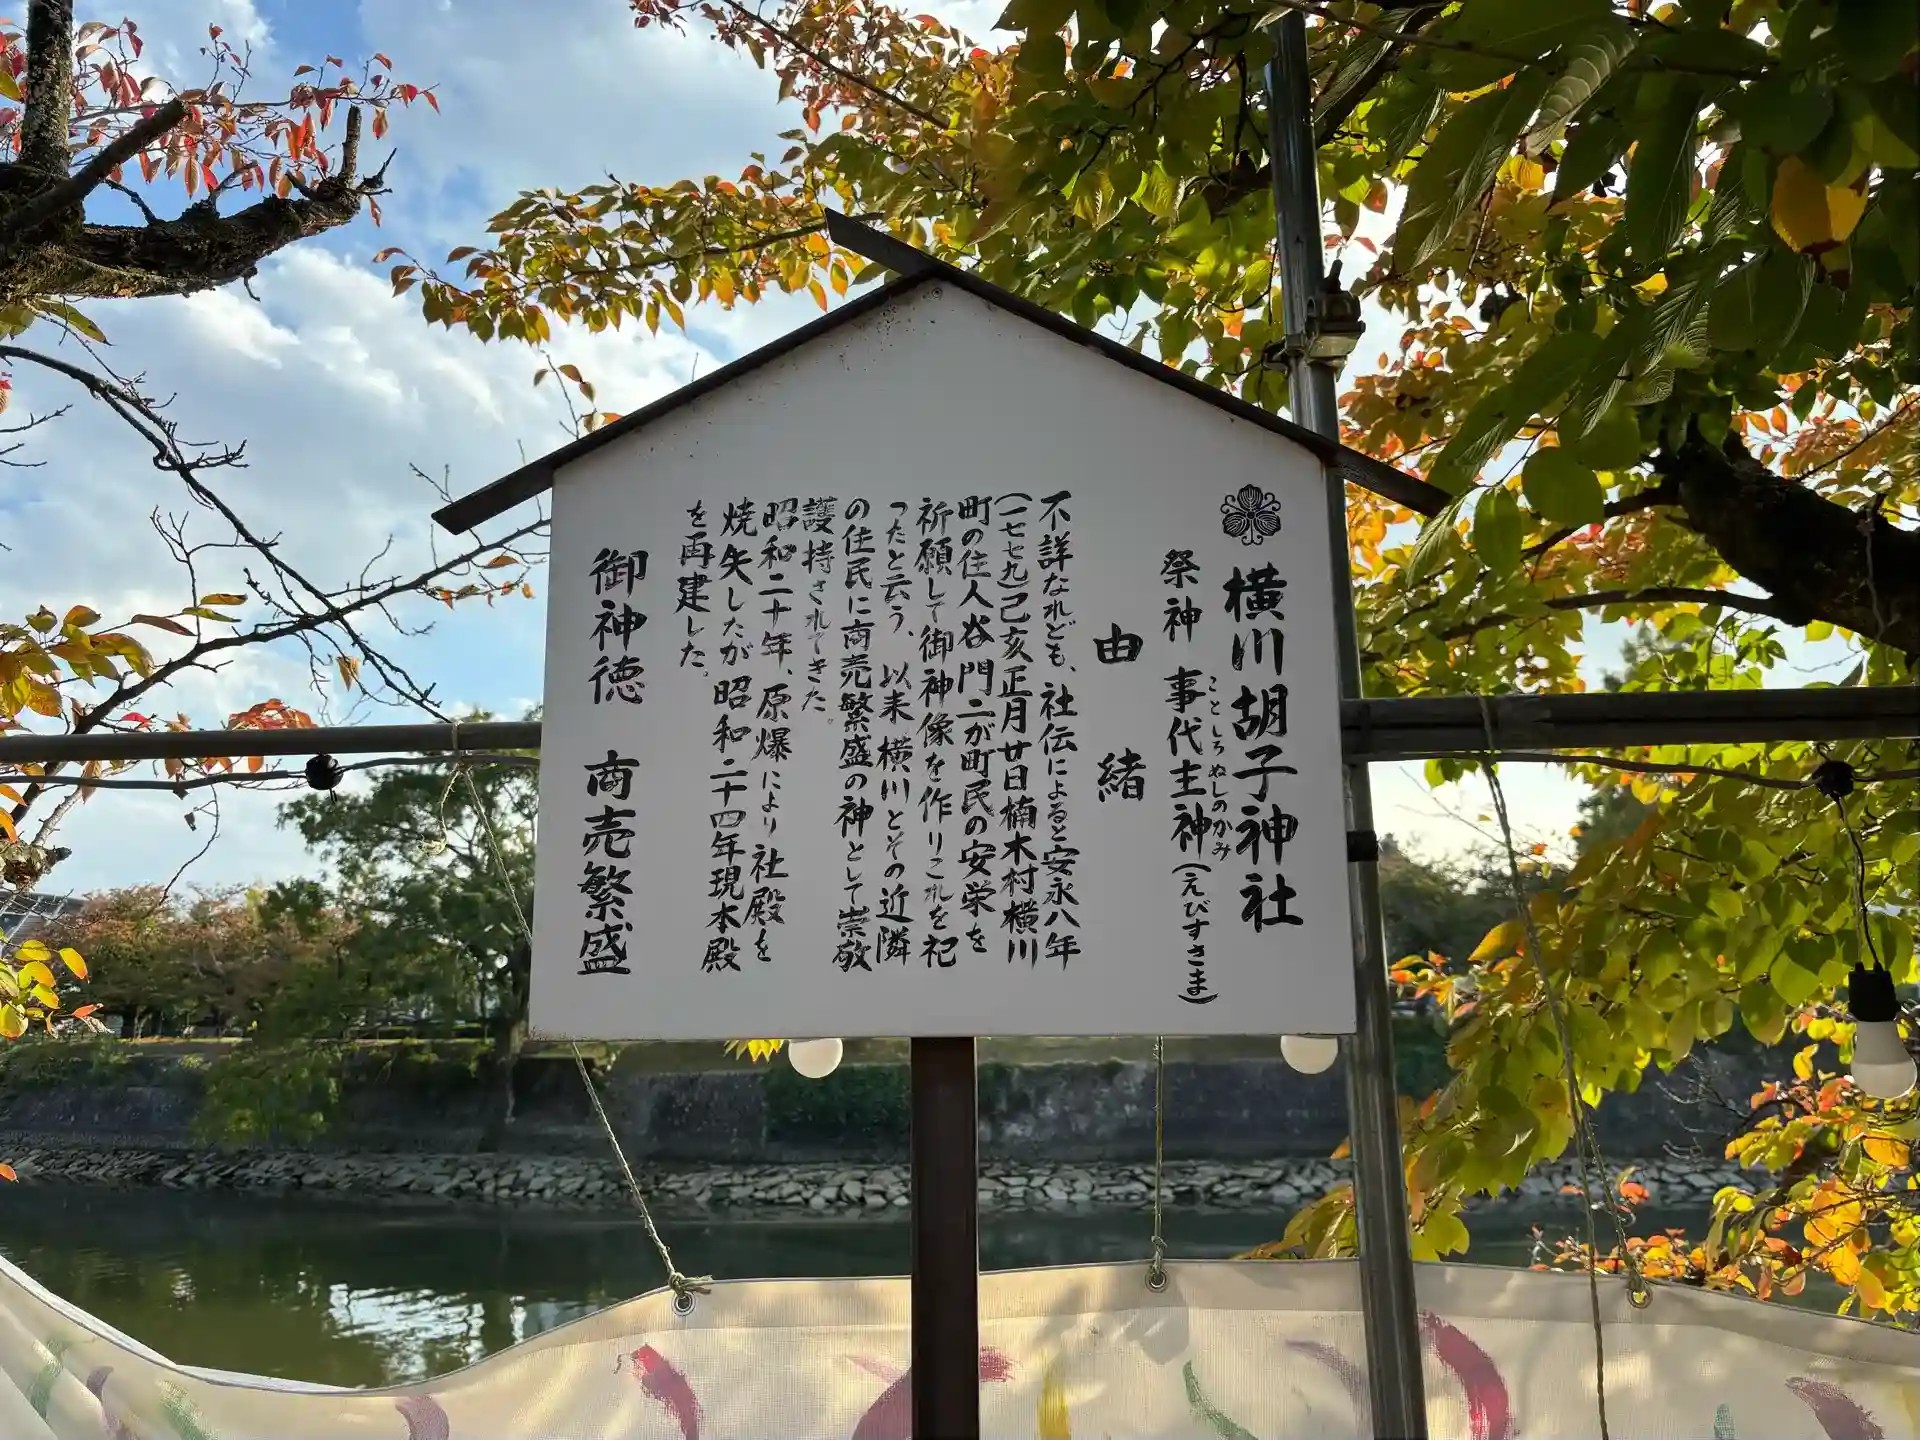 横川胡子神社
祭神 事代主神(えびすさま)
ことしろぬしのかみ
由緒
不詳なれども、社伝によると安永八年
(一七七九)己亥正月廿日楠木村横川
町の住人谷門二が町民の安栄を
祈願して御神像を作りこれを祀
ったと云う、以来横川とその近隣
の住民に商売繁盛の神として崇敬
護持されてきた。
昭和二十年、原爆により社殿を
焼失したが昭和二十四年現本殿
を再建した。
御神徳 商売繁盛